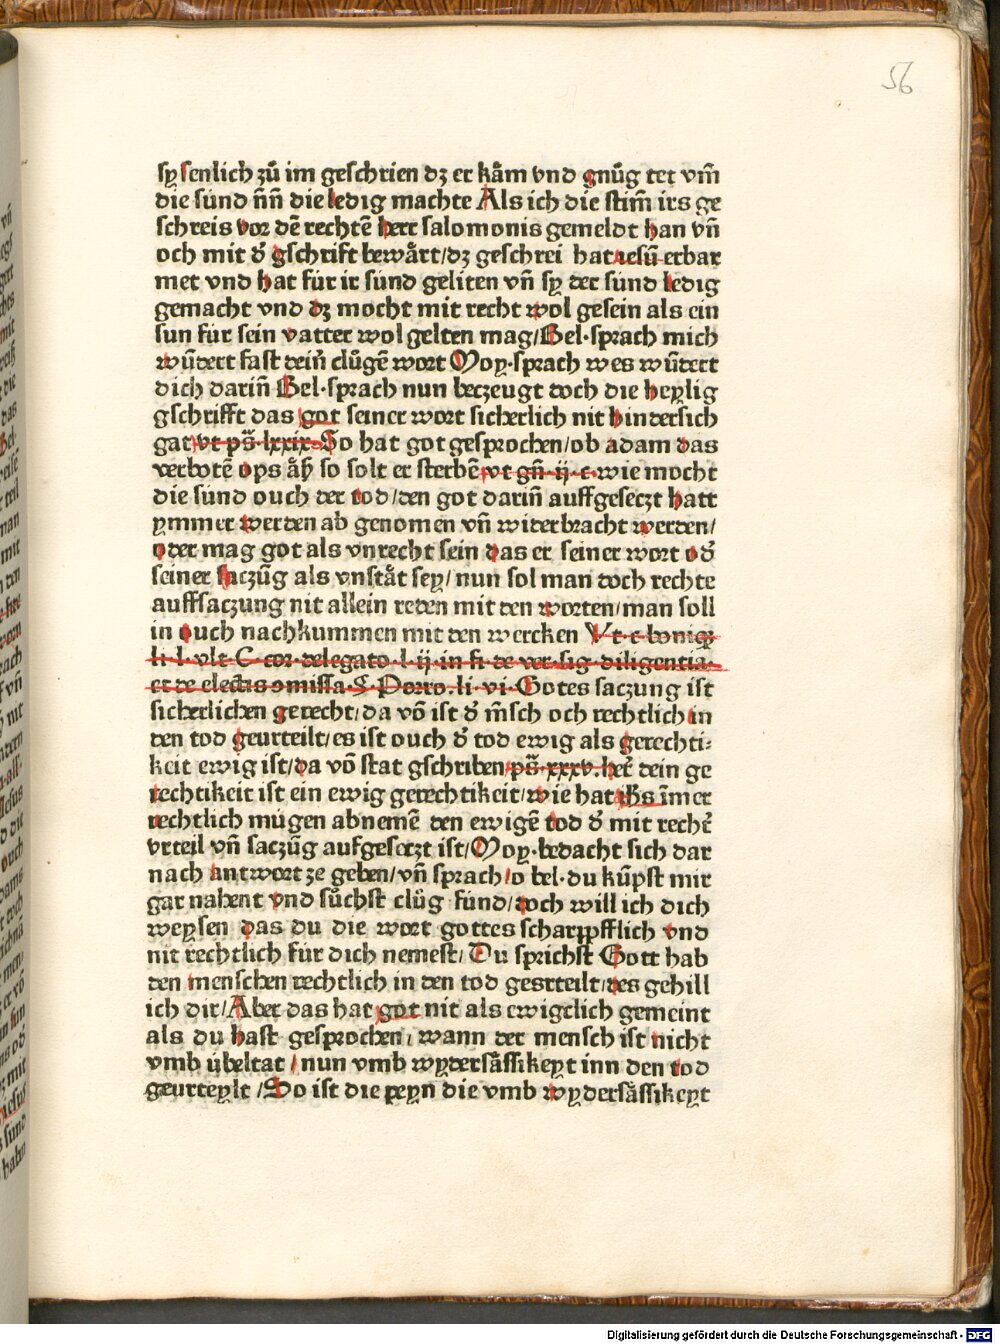 56
sy senlich zů im geschrien dz er kåm vnd gnůg tet vm̄
die sünd ñn die ledig machte Als ich die stim̄ irs ge
schreis vor dē rechtē herr salomonis gemeldt han vn̄
och mit d̕ gschrift bewårt/dz geschrei hat iesū erbar
met vnd hat für ir sünd geliten vn̄ sy der sünd ledig
gemacht vnd dz mocht mit recht wol gesein als ein
sun für sein vatter wol gelten mag/Bel·sprach mich
wūdert fast dein̄ clůgē wort Moy·sprach wes wūdert
dich darin̄ Bel·sprach nun beczeugt doch die heylig
gschrifft das got seiner wort sicherlich nit hindersich
gat vt ps̄·lxxix·So hat got gesprochen/ob adam das
verbotē ops åß so solt er sterbē vt gn̄·ij·c·wie mocht
die sünd ouch der tod/den got darin̄ auffgeseczt hatt
ymmer werden ab genomen vn̄ widerbracht werden/
oder mag got als vnrecht sein das er seiner wort od̕
seiner saczūg als vnståt sey/nun sol man doch rechte
auffsaczung nit allein reden mit den worten/man soll
in ouch nachkummen mit den wercken Vt·c·loniq̄
li·l·vlt·C·cor·delegato·l·ij·in fi·de ver·sig·diligentia·
et de electis omissa·S·Porro.li·vi·Gotes saczung ist
sicherlichen gerecht/da vō ist d̕ m̄sch och rechtlich in
den tod geurteilt/es ist ouch d̕ tod ewig als gerechti⸗
keit ewig ist/da vō stat gschriben ps̄·xxxv.her̄ dein ge
rechtikeit ist ein ewig gerechtikeit/wie hat ih̄s im̄er
rechtlich mügen abnemē den ewigē tod d̕ mit recht̄
vrteil vn̄ saczūg aufgeseczt ist/Moy·bedacht sich dar
nach antwort ze geben/vn̄ sprach/o bel·du kūpst mir
gar nahent vnd sůchst clůg fünd/doch will ich dich
weysen das du die wort gottes scharppfflich vnd
nit rechtlich für dich nemest/Du sprichst Gott hab
den menschen rechtlich in den tod gesrteilt/des gehill
ich dir/Aber das hat got nit als ewigclich gemeint
als du hast gesprochen/wann der mensch ist nicht
vmb übeltat/nun vmb wydersåssikeyt inn den tod
geurteylt/So ist die peyn die vmb wydersåssikeyt
Digitalisierung gefördert durch die Deutsche Forschungsgemeinschaft - DFG